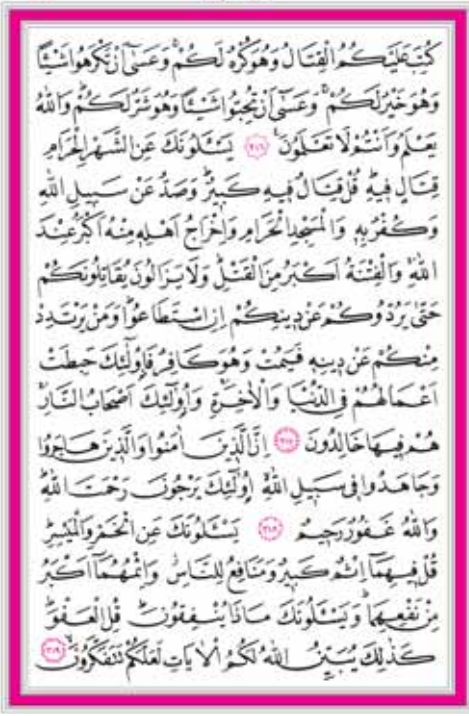 كُتِبَ عَلَيْكُمُ الْقِتَالُ وَهُوَ كُرْهٌ لَكُمْ وَعَسٰٓى اَنْ تَكْرَهُوا شَيْـًٔا
وَهُوَ خَيْرٌ لَكُمْ وَعَسٰٓى اَنْ تُحِبُّوا شَيْـًٔا وَهُوَ شَرٌّ لَكُمْ وَاللّٰهُ
يَعْلَمُ وَاَنْتُمْ لَا تَعْلَمُونَ ﴿٢١٦﴾ يَسْـَٔلُونَكَ عَنِ الشَّهْرِ الْحَرَامِ
قِتَالٍ فِيهِ قُلْ قِتَالٌ فِيهِ كَبِيرٌ وَصَدٌّ عَنْ سَبِيلِ اللّٰهِ
وَكُفْرٌ بِهٖ وَالْمَسْجِدِ الْحَرَامِ وَاِخْرَاجُ اَهْلِهٖ مِنْهُ اَكْبَرُ عِنْدَ
اللّٰهِ وَالْفِتْنَةُ اَكْبَرُ مِنَ الْقَتْلِ وَلَا يَزَالُونَ يُقَاتِلُونَكُمْ
حَتّٰى يَرُدُّوكُمْ عَنْ دِينِكُمْ اِنِ اسْتَطَاعُوا وَمَنْ يَرْتَدِدْ
مِنْكُمْ عَنْ دِينِهٖ فَيَمُتْ وَهُوَ كَافِرٌ فَاُولٰٓئِكَ حَبِطَتْ
اَعْمَالُهُمْ فِي الدُّنْيَا وَالْاٰخِرَةِ وَاُولٰٓئِكَ اَصْحَابُ النَّارِ
هُمْ فِيهَا خَالِدُونَ ﴿٢١٧﴾ اِنَّ الَّذِينَ اٰمَنُوا وَالَّذِينَ هَاجَرُوا
وَجَاهَدُوا فِي سَبِيلِ اللّٰهِ اُولٰٓئِكَ يَرْجُونَ رَحْمَتَ اللّٰهِ
وَاللّٰهُ غَفُورٌ رَحِيمٌ ﴿٢١٨﴾ يَسْـَٔلُونَكَ عَنِ الْخَمْرِ وَالْمَيْسِرِ
قُلْ فِيهِمَٓا اِثْمٌ كَبِيرٌ وَمَنَافِعُ لِلنَّاسِ وَاِثْمُهُمَٓا اَكْبَرُ
مِنْ نَفْعِهِمَا وَيَسْـَٔلُونَكَ مَاذَا يُنْفِقُونَ قُلِ الْعَفْوَ
كَذٰلِكَ يُبَيِّنُ اللّٰهُ لَكُمُ الْاٰيَاتِ لَعَلَّكُمْ تَتَفَكَّرُونَ ﴿٢١٩﴾